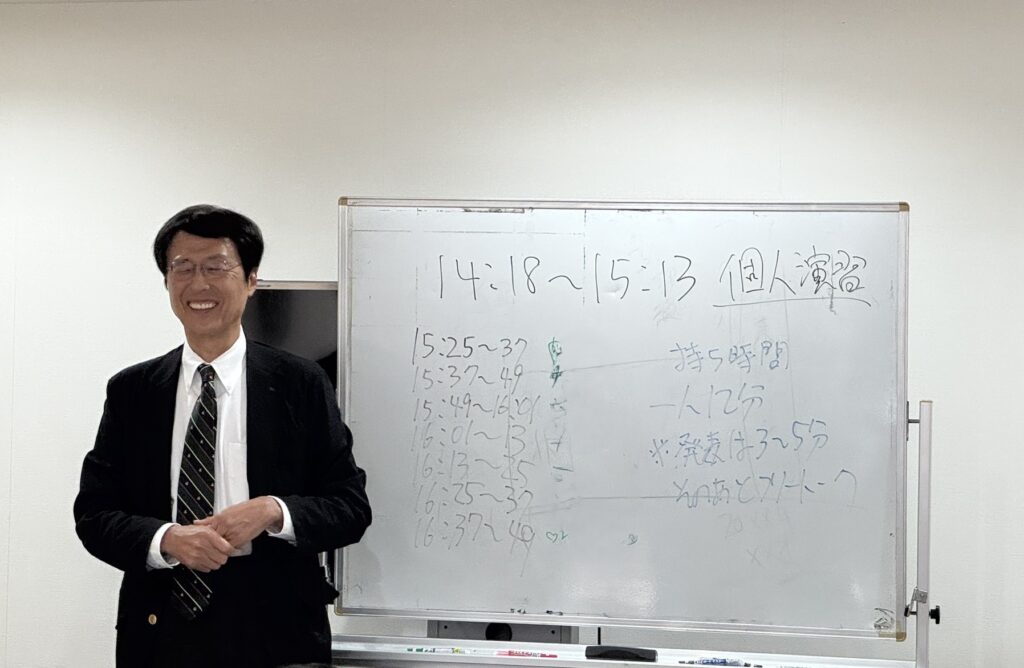 14:18〜15:13 個人演習
15:25〜37
15:37〜49
15:49〜16:01
16:01〜13
16:13〜25
16:25〜37
16:37〜49
持ち時間
一人12分
※発表は3〜5分
そのあとフリートーク